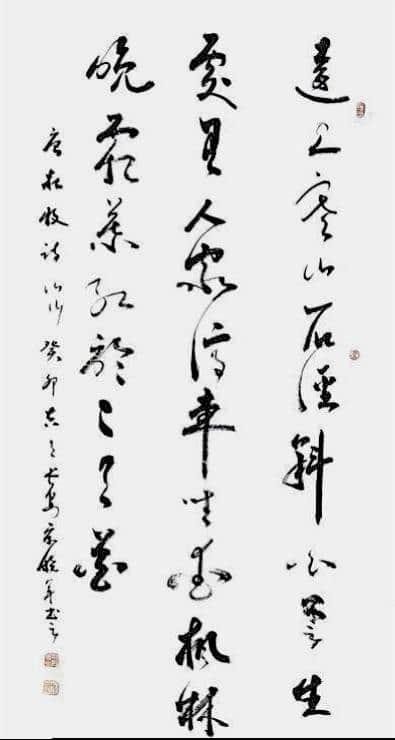 遠上寒山石徑斜白雲生
處有人家停車坐愛楓林
晚霜葉紅於二月花
唐杜牧詩山行癸卯於長安書